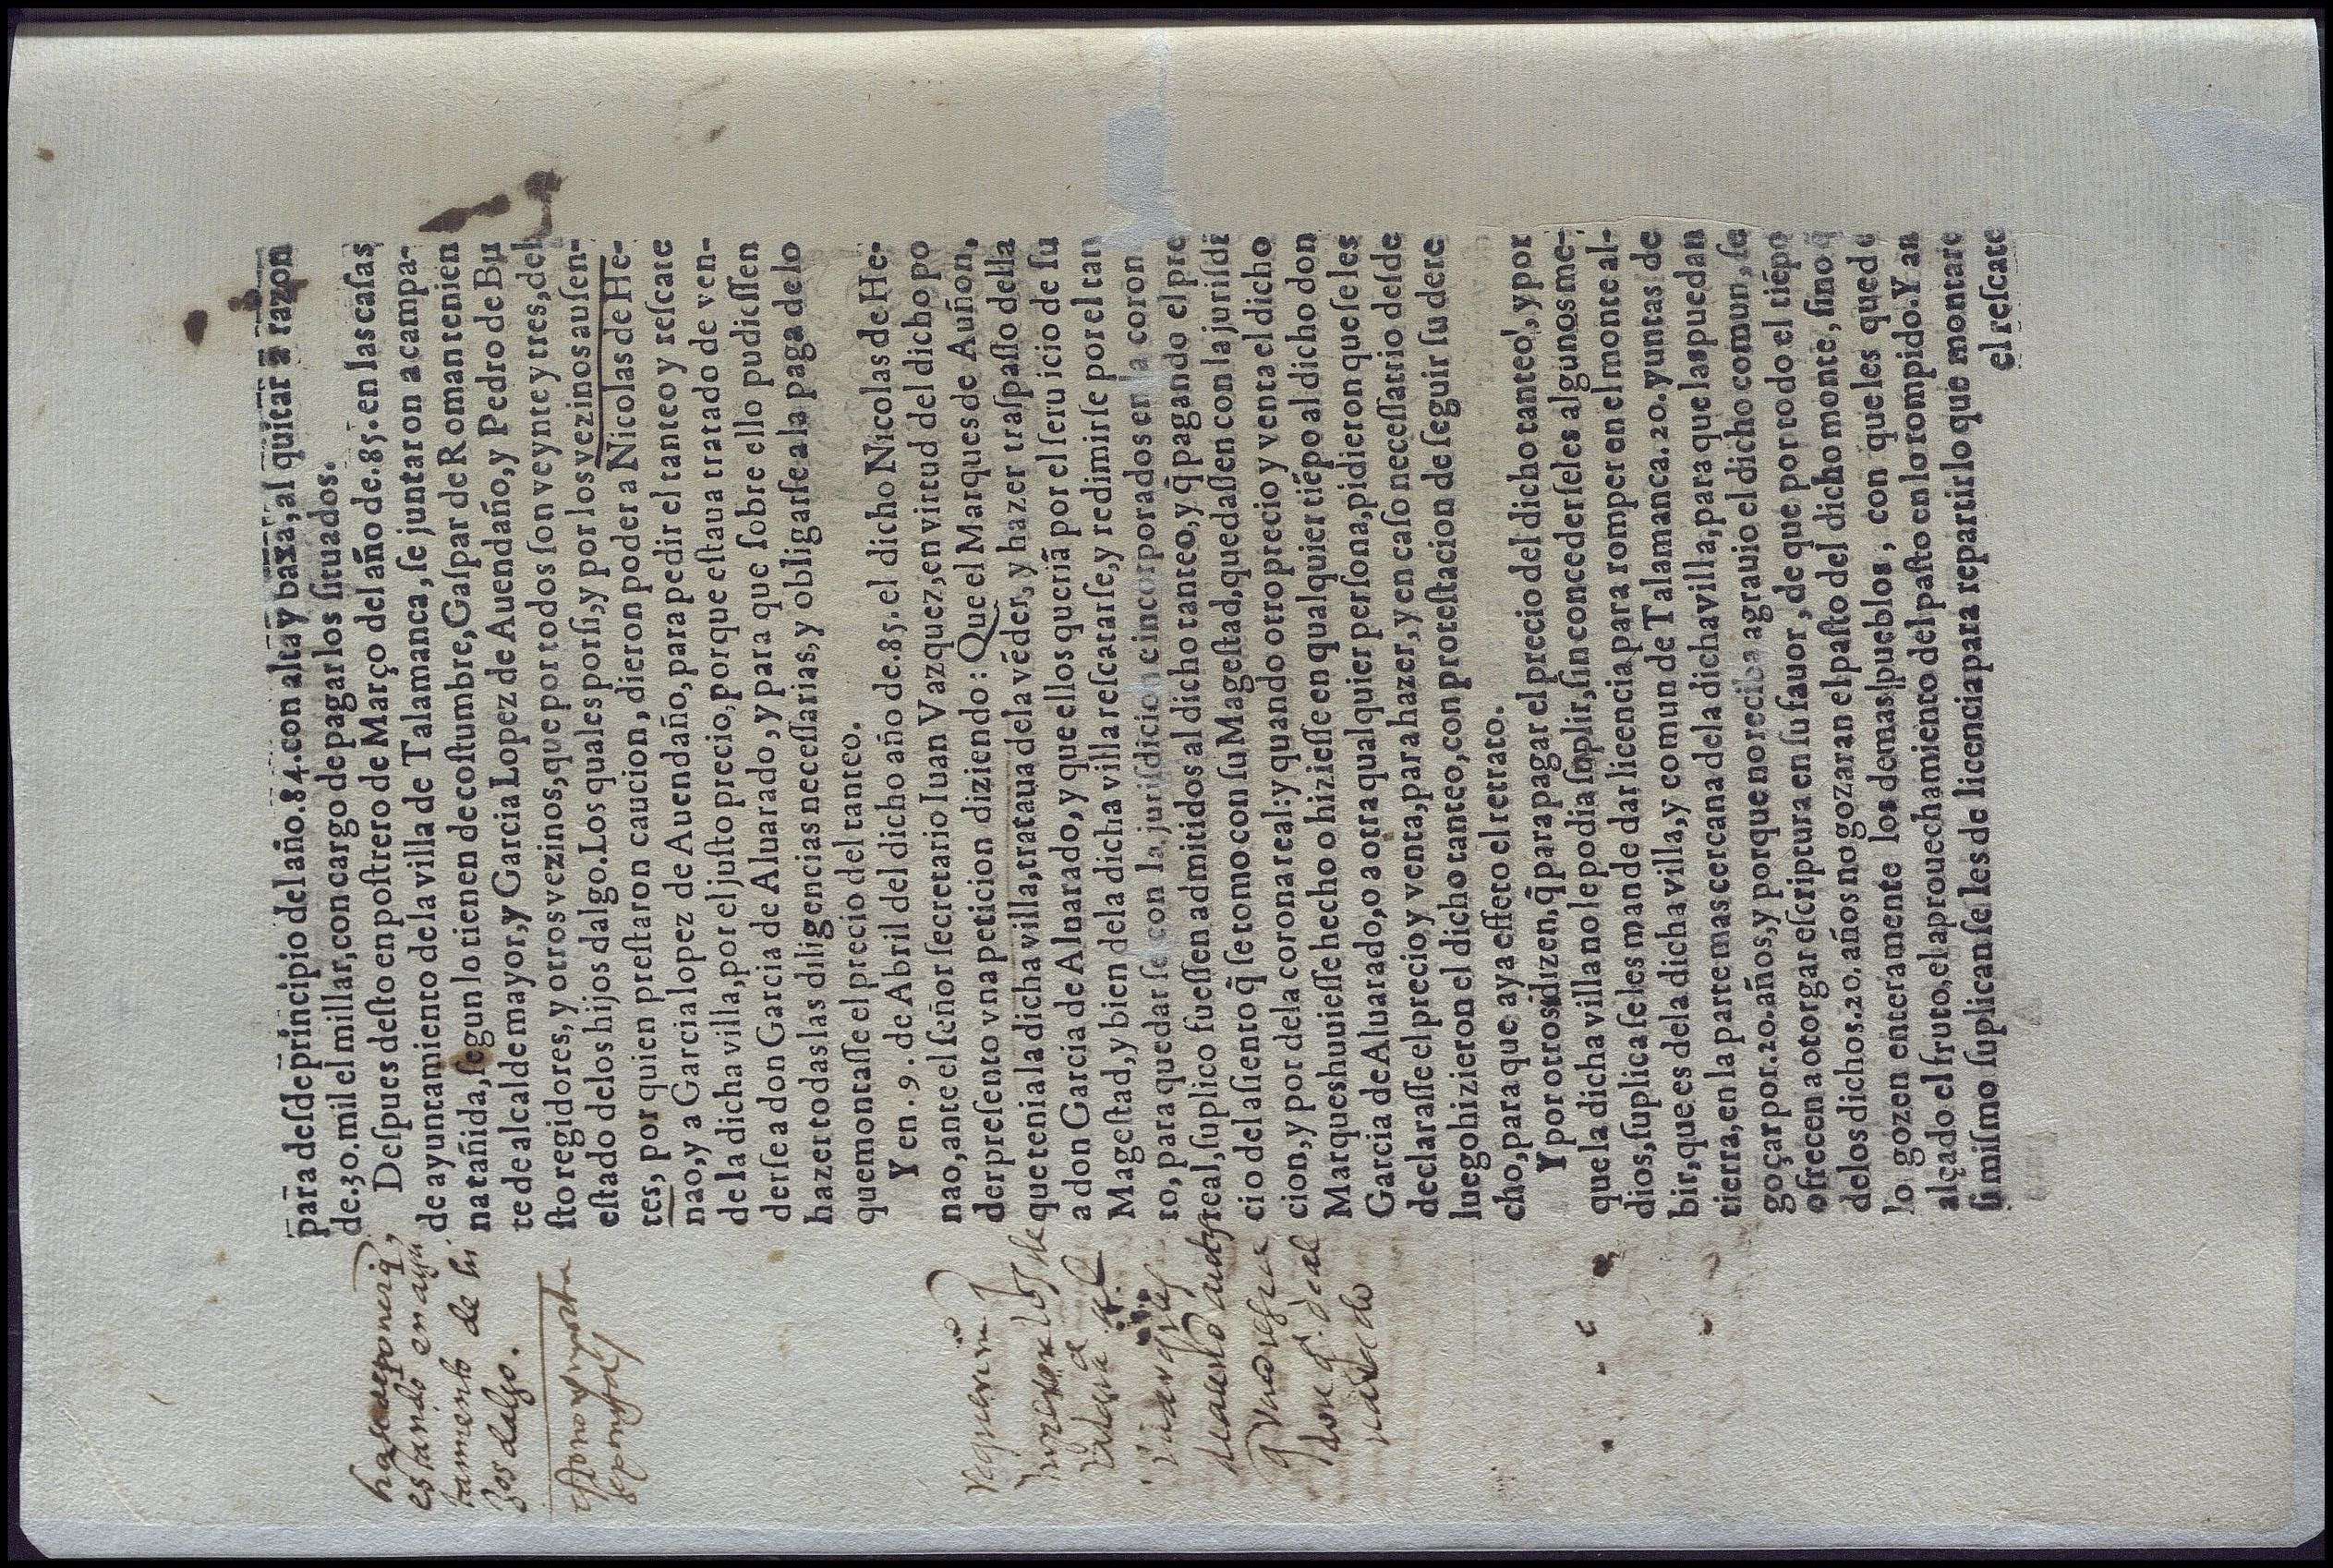 para desde principio del año.84.con alta y baxa,al quitar a razon
de.30.mil el millar,con cargo de pagar los situados.
Despues desto en postrero de Março del año de.85.en las casas
de ayuntamiento de la villa de Talamanca,se juntaron a campa-
na tañida,segun lo tienen de costumbre,Gaspar de Roman tenien
te de alcalde mayor,y Garcia Lopez de Auendaño,y Pedro de Bu
sto regidores,y otros vezinos,que por todos son veynte y tres,del
estado delos hijos dalgo.Los quales por si,y por los vezinos ausen-
tes, por quien prestaron caucion, dieron poder a Nicolas de He-
nao,y a Garcia lopez de Auendaño,para pedir el tanteo y rescate
de la dicha villa,por el justo precio,porque estaua tratado de ven-
derse a don Garcia de Aluarado,y para que sobre ello pudiessen
hazer todas las diligencias necessarias,y obligarse a la paga de lo
que montasse el precio del tanteo.
Y en.9.de Abril del dicho año de.85.el dicho Nicolas de He-
nao,ante el señor secretario Iuan Vazquez,en virtud del dicho po
der presento vna peticion diziendo: Que el Marques de Auñon,
que tenia la dicha villa,trataua dela vēder,y hazer traspasso della
a don Garcia de Aluarado,y que ellos queriā por el seruicio de su
Magestad,y bien dela dicha villa rescatarse,y redimirse por el tan
ro, para quedarse con la jurisdicion e incorporados en la coron
real,suplico fuessen admitidos al dicho tanteo,y q̃ pagando el pre
cio del asiento q̃ se tomo con su Magestad,quedassen con la jurisdi
cion,y por dela corona real:y quando otro precio y venta el dicho
Marques huuiesse hecho o hiziesse en qualquier tiēpo al dicho don
Garcia de Aluarado,o a otra qualquier persona,pidieron que se les
declarasse el precio y venta,para hazer,y en caso necessario desde
luego hizieron el dicho tanteo,con protestacion de seguir su dere
cho,para que aya effeto el retrato.
Y por otrosi dizen,q̃ para pagar el precio del dicho tanteo,y por
que la dicha villa no le podia suplir,sin concederseles algunos me-
dios,suplica se les mande dar licencia para romper en el monte al-
bir,que es dela dicha villa,y comun de Talamanca.20.yuntas de
tierra,en la parte mas cercana dela dicha villa,para que las puedan
goçar por.20.años,y porque no reciba agrauio el dicho comun,se
ofrecen a otorgar escriptura en su fauor, de que por todo el tiēpo
delos dichos.20.años no gozaran el pasto del dicho monte,sino q̃
lo gozen enteramente los demas pueblos, con que les quede
alçado el fruto,el aprouechamiento del pasto en lo rompido.Y an
si mismo suplican se les de licencia para repartir lo que montare
el rescate
estando en ayun
tamiento de hi
jos dalgo.